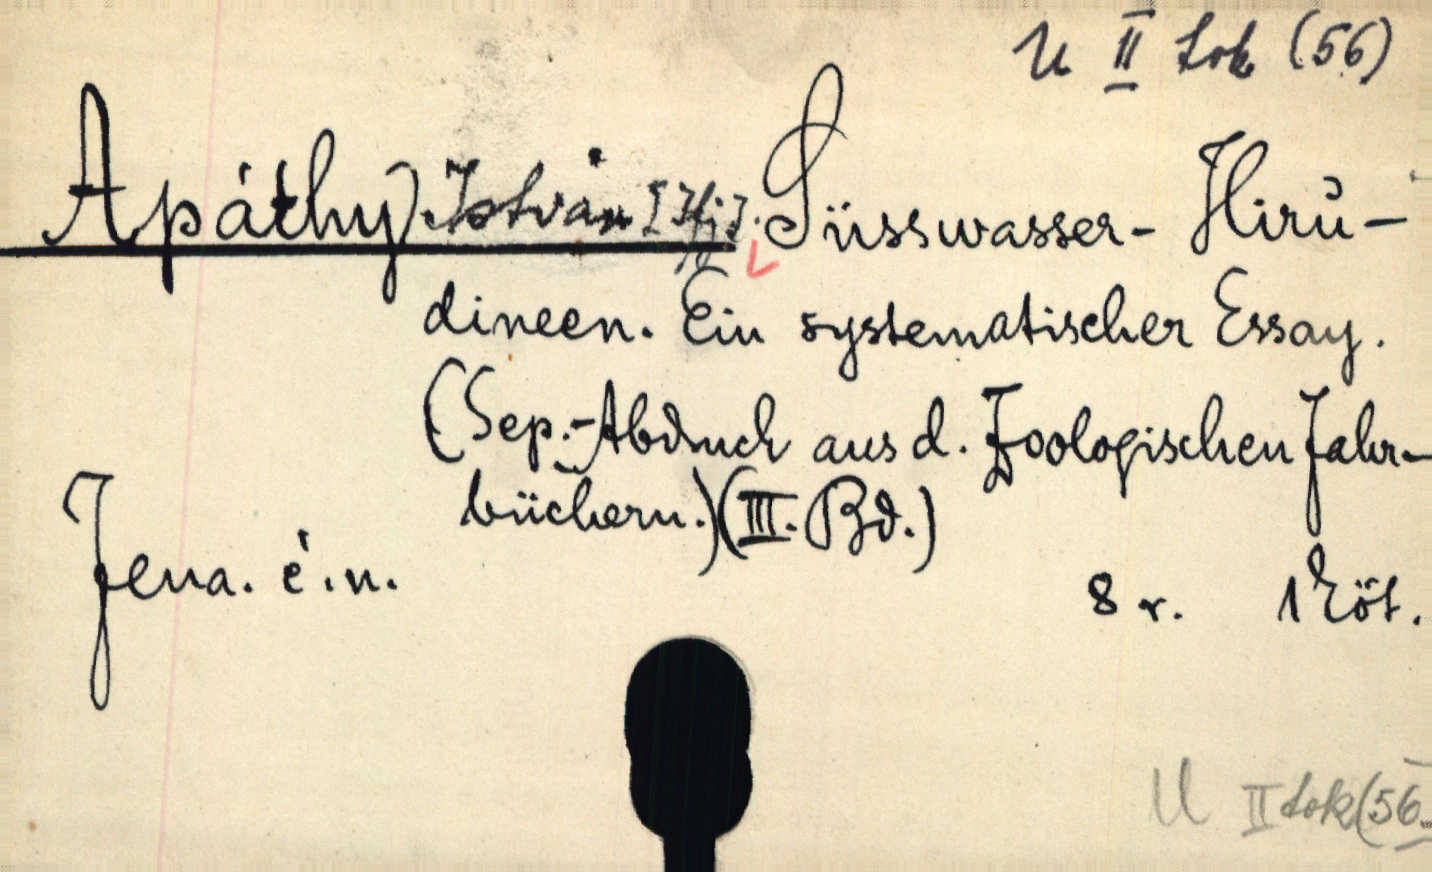 U II tok (56)
Apáthy István [Ifj]. Süsswasser- Hiru-
dineen. Ein systematischer Essay.
(Sep.-Abdruck aus d. Zoologischen Jahr-
büchern.) (III. Bd.)
Jena. é. n.
8 r. 1 köt.
U II tok (56